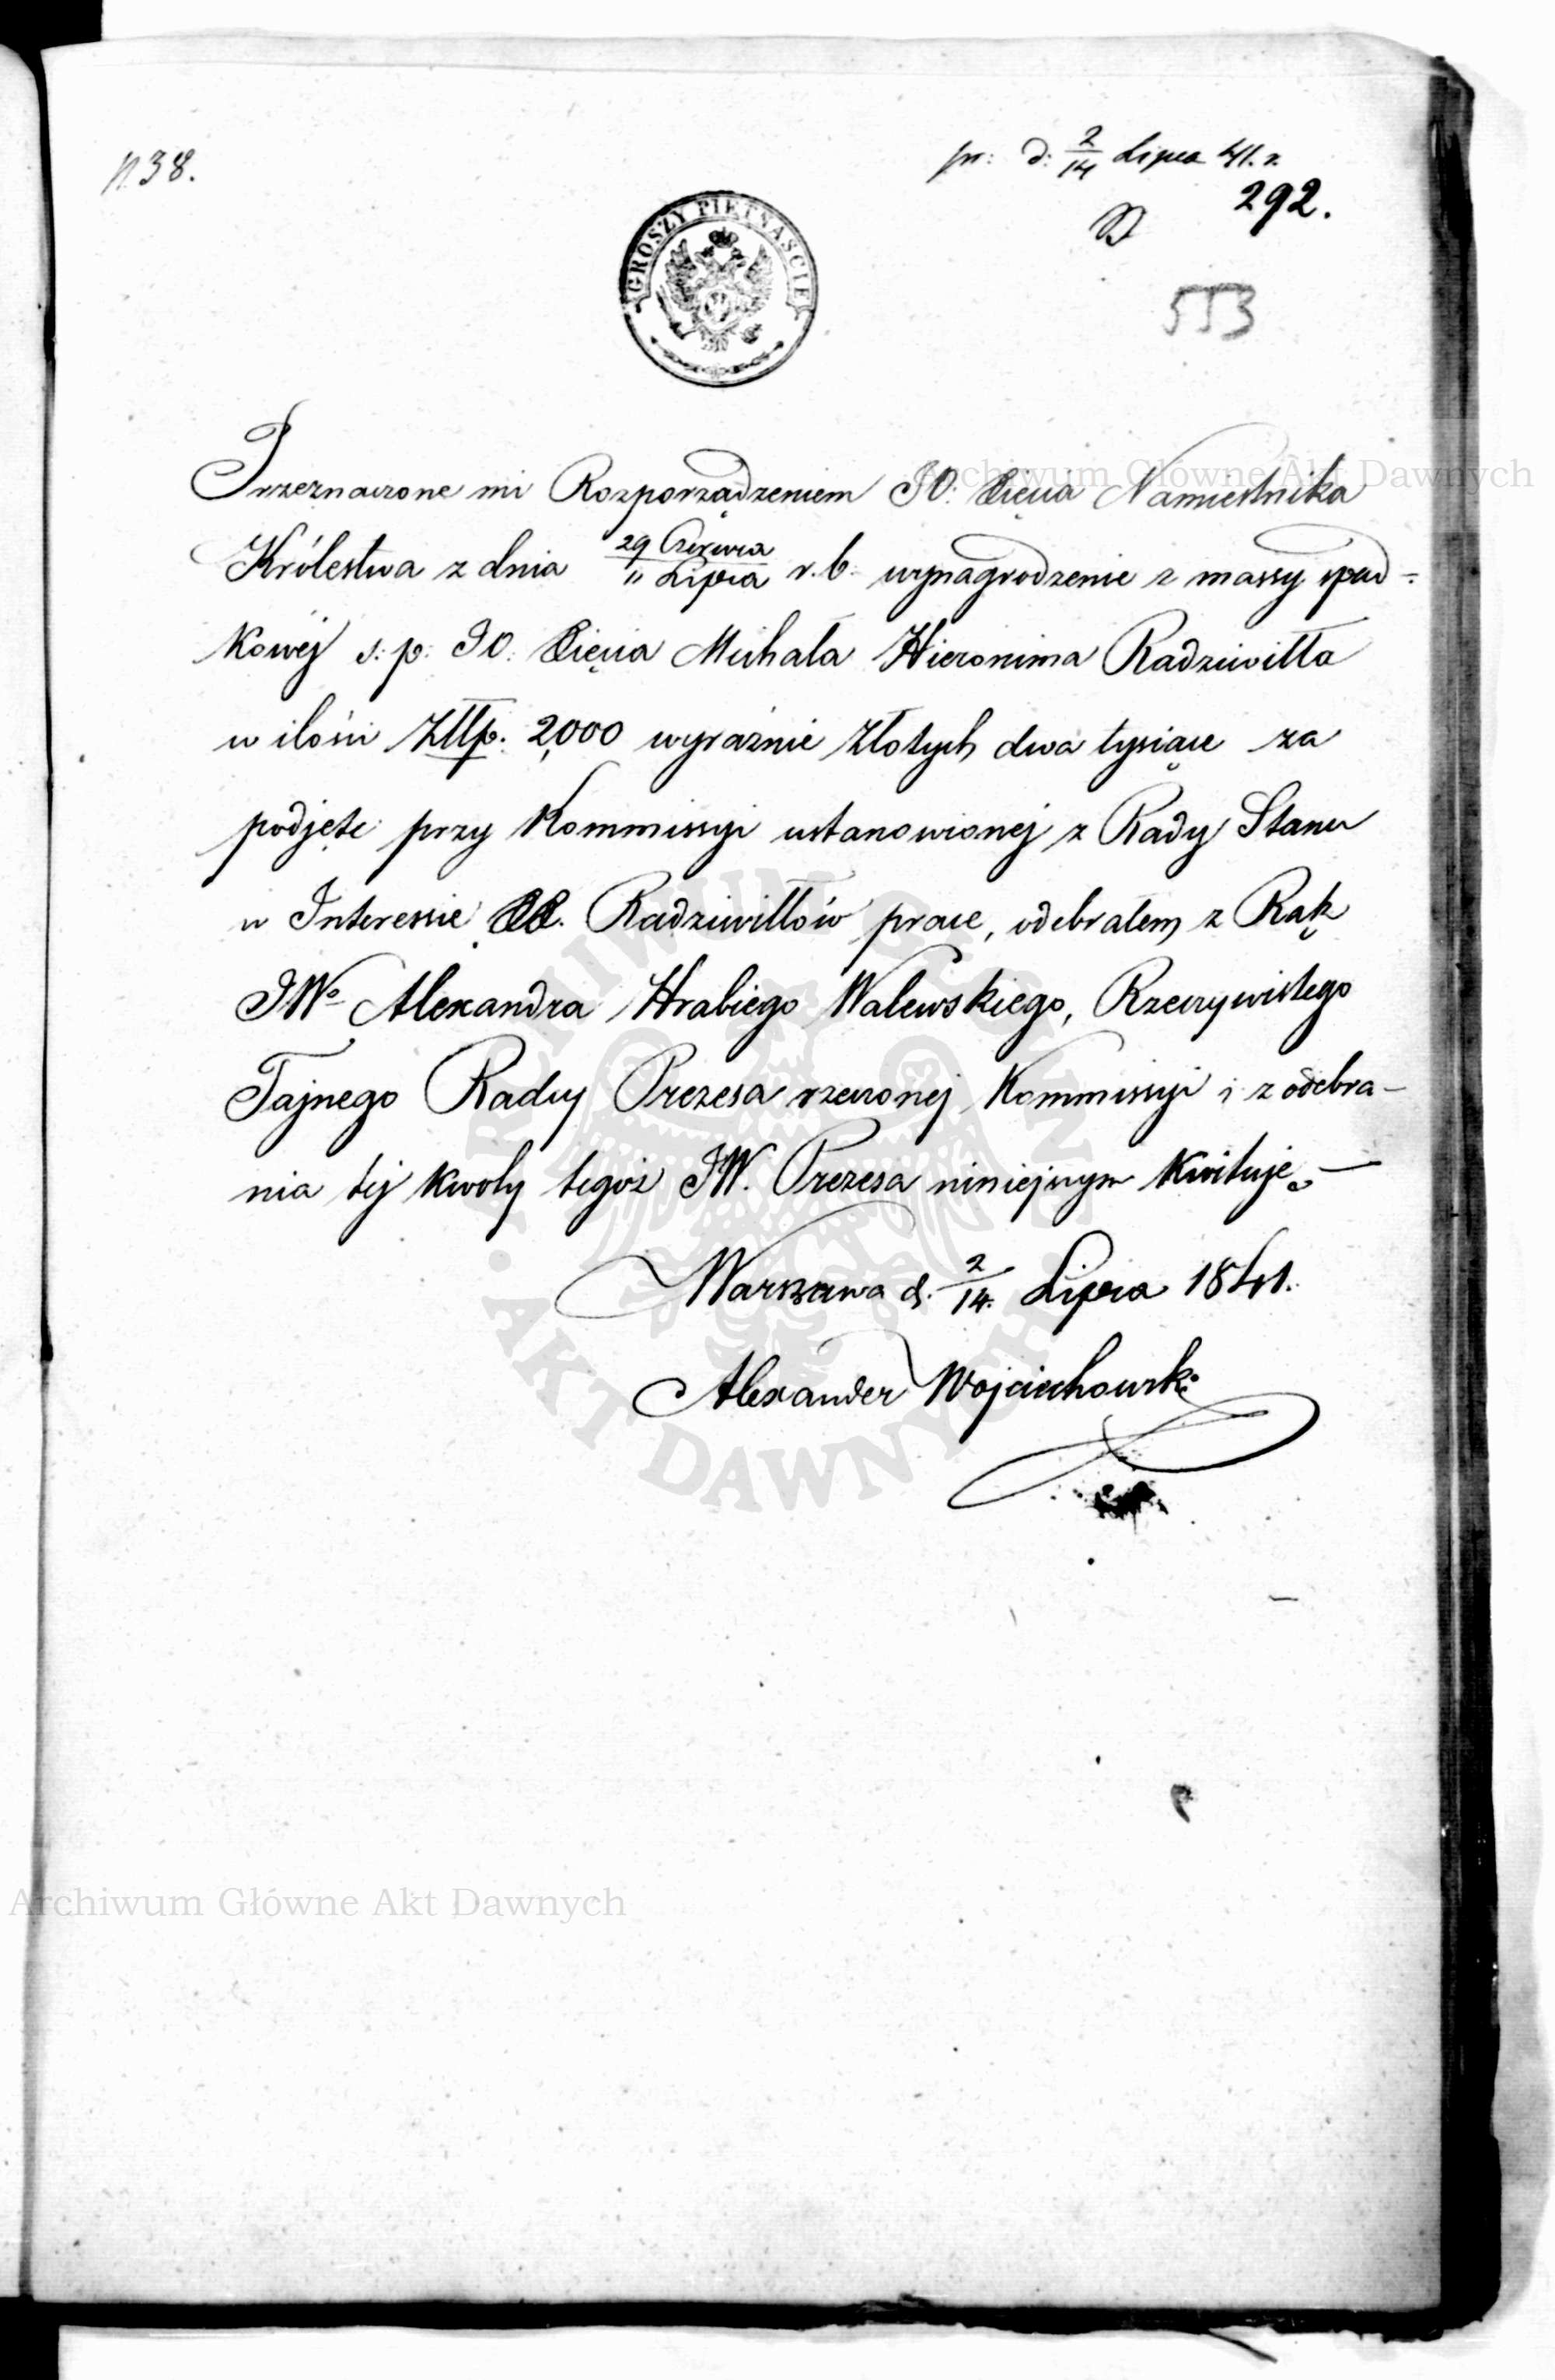 n 38.
pr: d: 2/14 Lipca 41. r.
292.
GROSZY PIĘTNAŚCIE
553
Przeznaczone mi Rozporządzeniem JO: Xięcia Namiestnika
Królestwa z dnia 29 Czerwca/11 Lipca r. b. wynagrodzenie z massy spad-
kowéj ś: p: JO: Xięcia Michała Hieronima Radziwiłła
w ilości Złtp. 2,000 wyraźnie Złotych dwa tysiące za
podjęte przy Kommissyi ustanowionej z Rady Stanu
w Interessie XX. Radziwiłłów prace, odebrałem z Rąk
JWo Alexandra Hrabiego Walewskiego, Rzeczywistego
Tajnego Radcy Prezesa rzeczonej Kommissyi i z odebra-
nia tej kwoty tegoż JW. Prezesa niniejszym kwituję. —
Warszawa d. 2/14. Lipca 1841.
Alexander Wojciechowski
Archiwum Główne Akt Dawnych
Archiwum Główne Akt Dawnych
ARCHIWUM GŁÓWNE AKT DAWNYCH